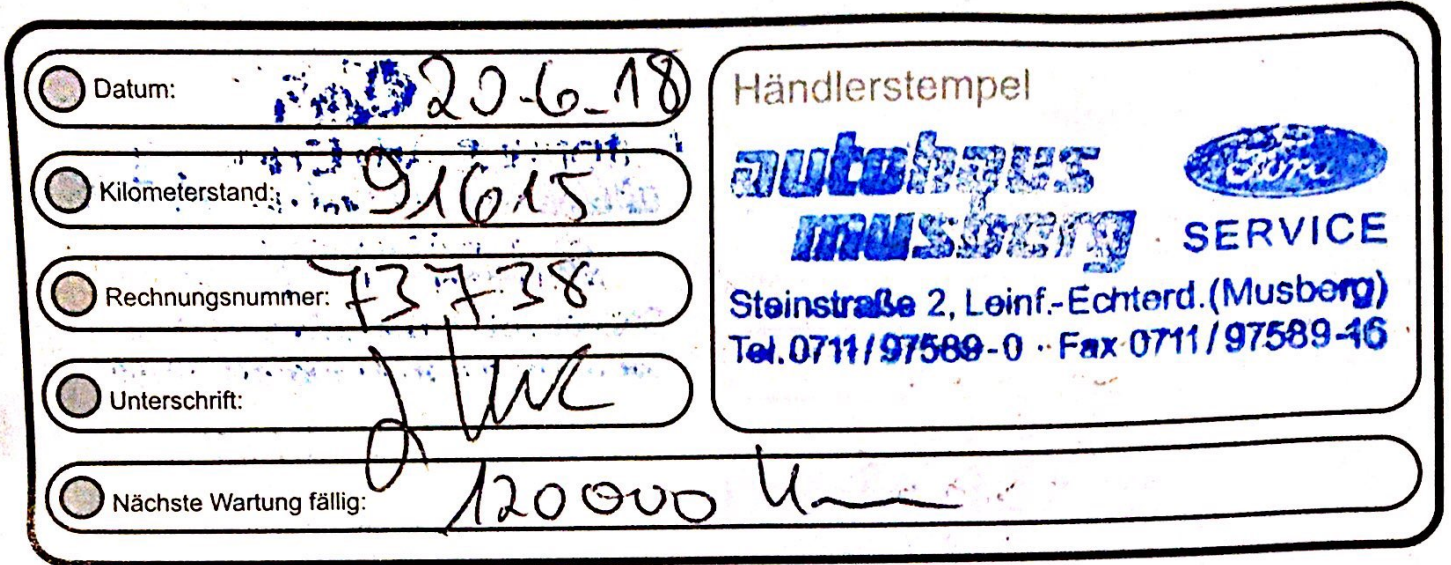 Datum: 20-6-18
Kilometerstand: 91615
Rechnungsnummer: 73738
Unterschrift:
Nächste Wartung fällig: 120000 Km
Händlerstempel
autohaus
musberg
Ford
SERVICE
Steinstraße 2, Leinf.-Echterd.(Musberg)
Tel.0711/97589-0 · Fax 0711/97589-16